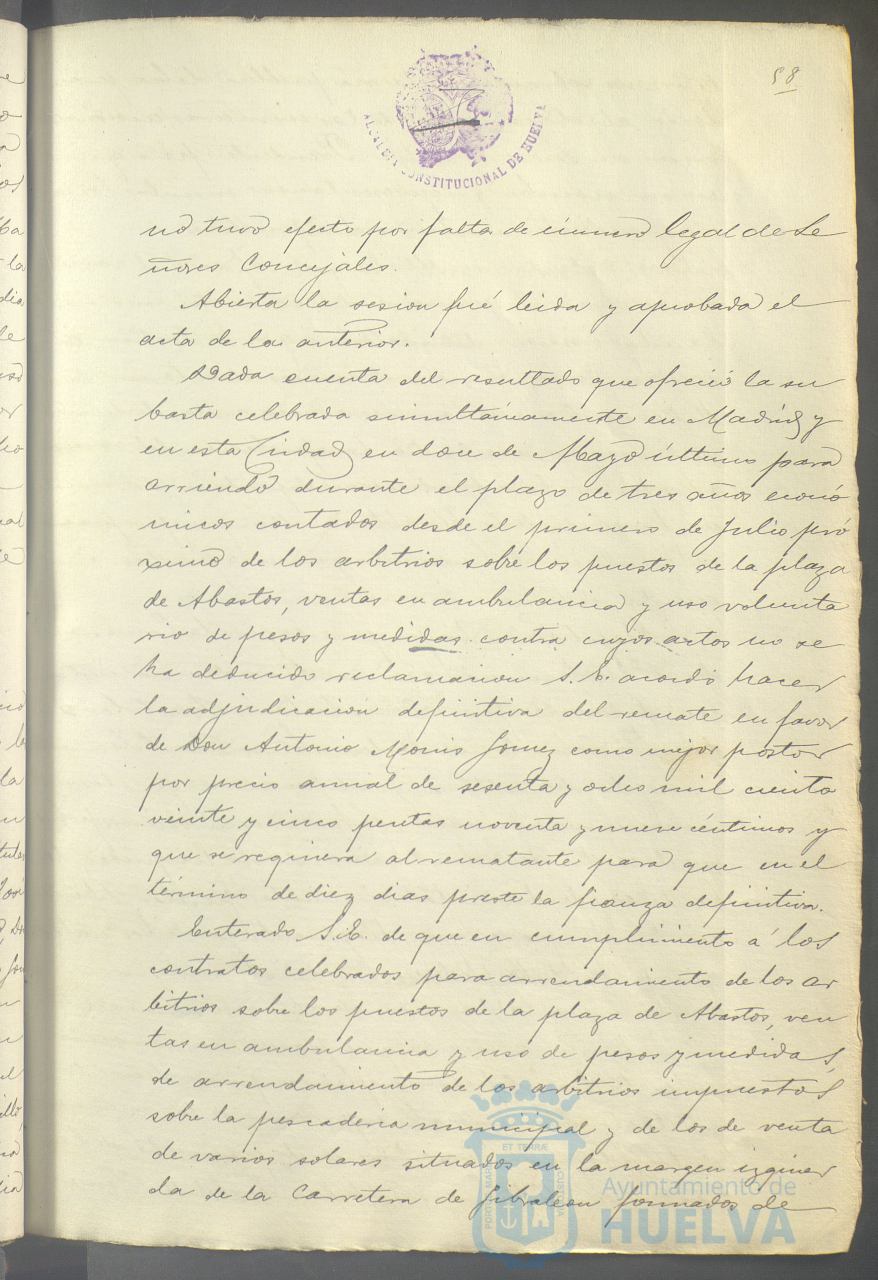 58
ALCALDIA CONSTITUCIONAL DE HUELVA
no tuvo efecto por falta de número legal de Se
ñores Concejales.
Abierta la sesion fué leida y aprobada el
acta de la anterior.
Dada cuenta del resultado que ofreció la su
basta celebrada simultáneamente en Madrid y
en esta Ciudad en doce de Mayo último para
arriendo durante el plazo de tres años econó
micos contados desde el primero de Julio pró
ximo de los arbitrios sobre los puestos de la plaza
de Abastos, ventas en ambulancia y uso volunta
rio de pesos y medidas contra cuyos actos no se
ha deducido reclamacion S.E. acordó hacer
la adjudicacion definitiva del remate en favor
de Don Antonio Monis Gomez como mejor postor
por precio annal de sesenta y ocho mil ciento
veinte y cinco pesetas noventa y nueve céntimos y
que se requiera al rematante para que en el
término de diez dias preste la fianza definitiva.
Enterado S.E. de que en cumplimiento á los
contratos celebrados para arrendamiento de los ar
bitrios sobre los puestos de la plaza de Abastos, ven
tas en ambulancia y uso de pesos y medidas,
de arrendamiento de los arbitrios impuestos
sobre la pescaderia municipal y de los de venta
de varios solares situados en la margen izquier
da de la Carretera de Gibraleon formados de
Ayuntamiento de
HUELVA